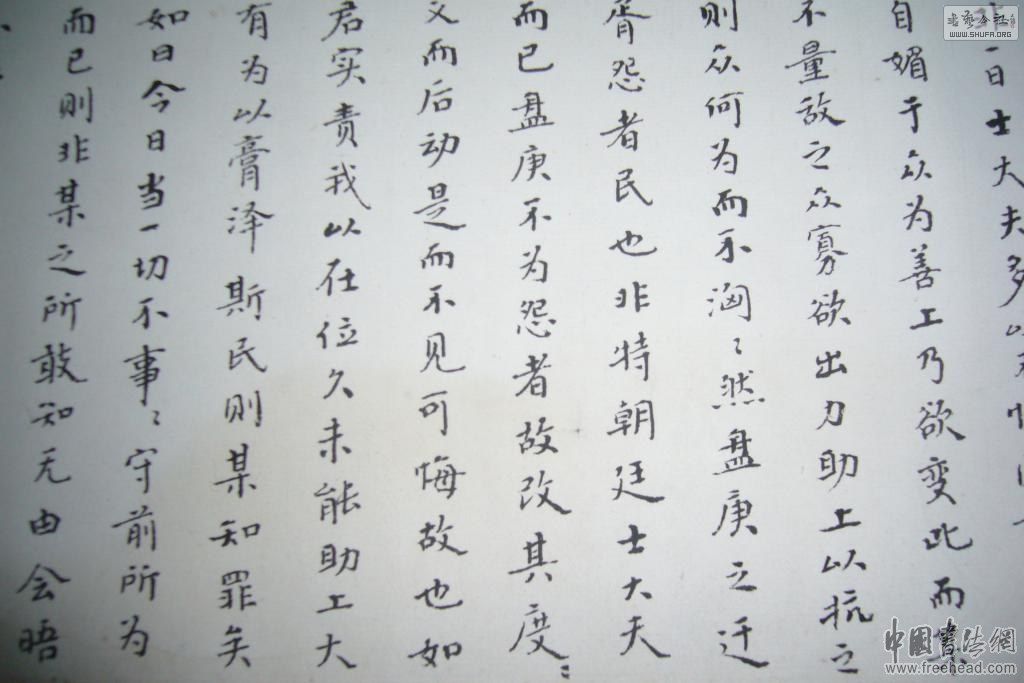 一日士大夫多以
自媚于众为善上乃欲变此而某
不量敌之众寡欲出力助上以抗之
则众何为而不汹〻然盘庚之迁
胥怨者民也非特朝廷士大夫
而已盘庚不为怨者故改其度〻
义而后动是而不见可悔故也如
君实责我以在位久未能助上大
有为以膏泽斯民则某知罪矣
如曰今日当一切不事〻守前所为
而已则非某之所敢知无由会晤
书法公社
WWW.SHUFA.ORG
中国书法網
www.freehead.com